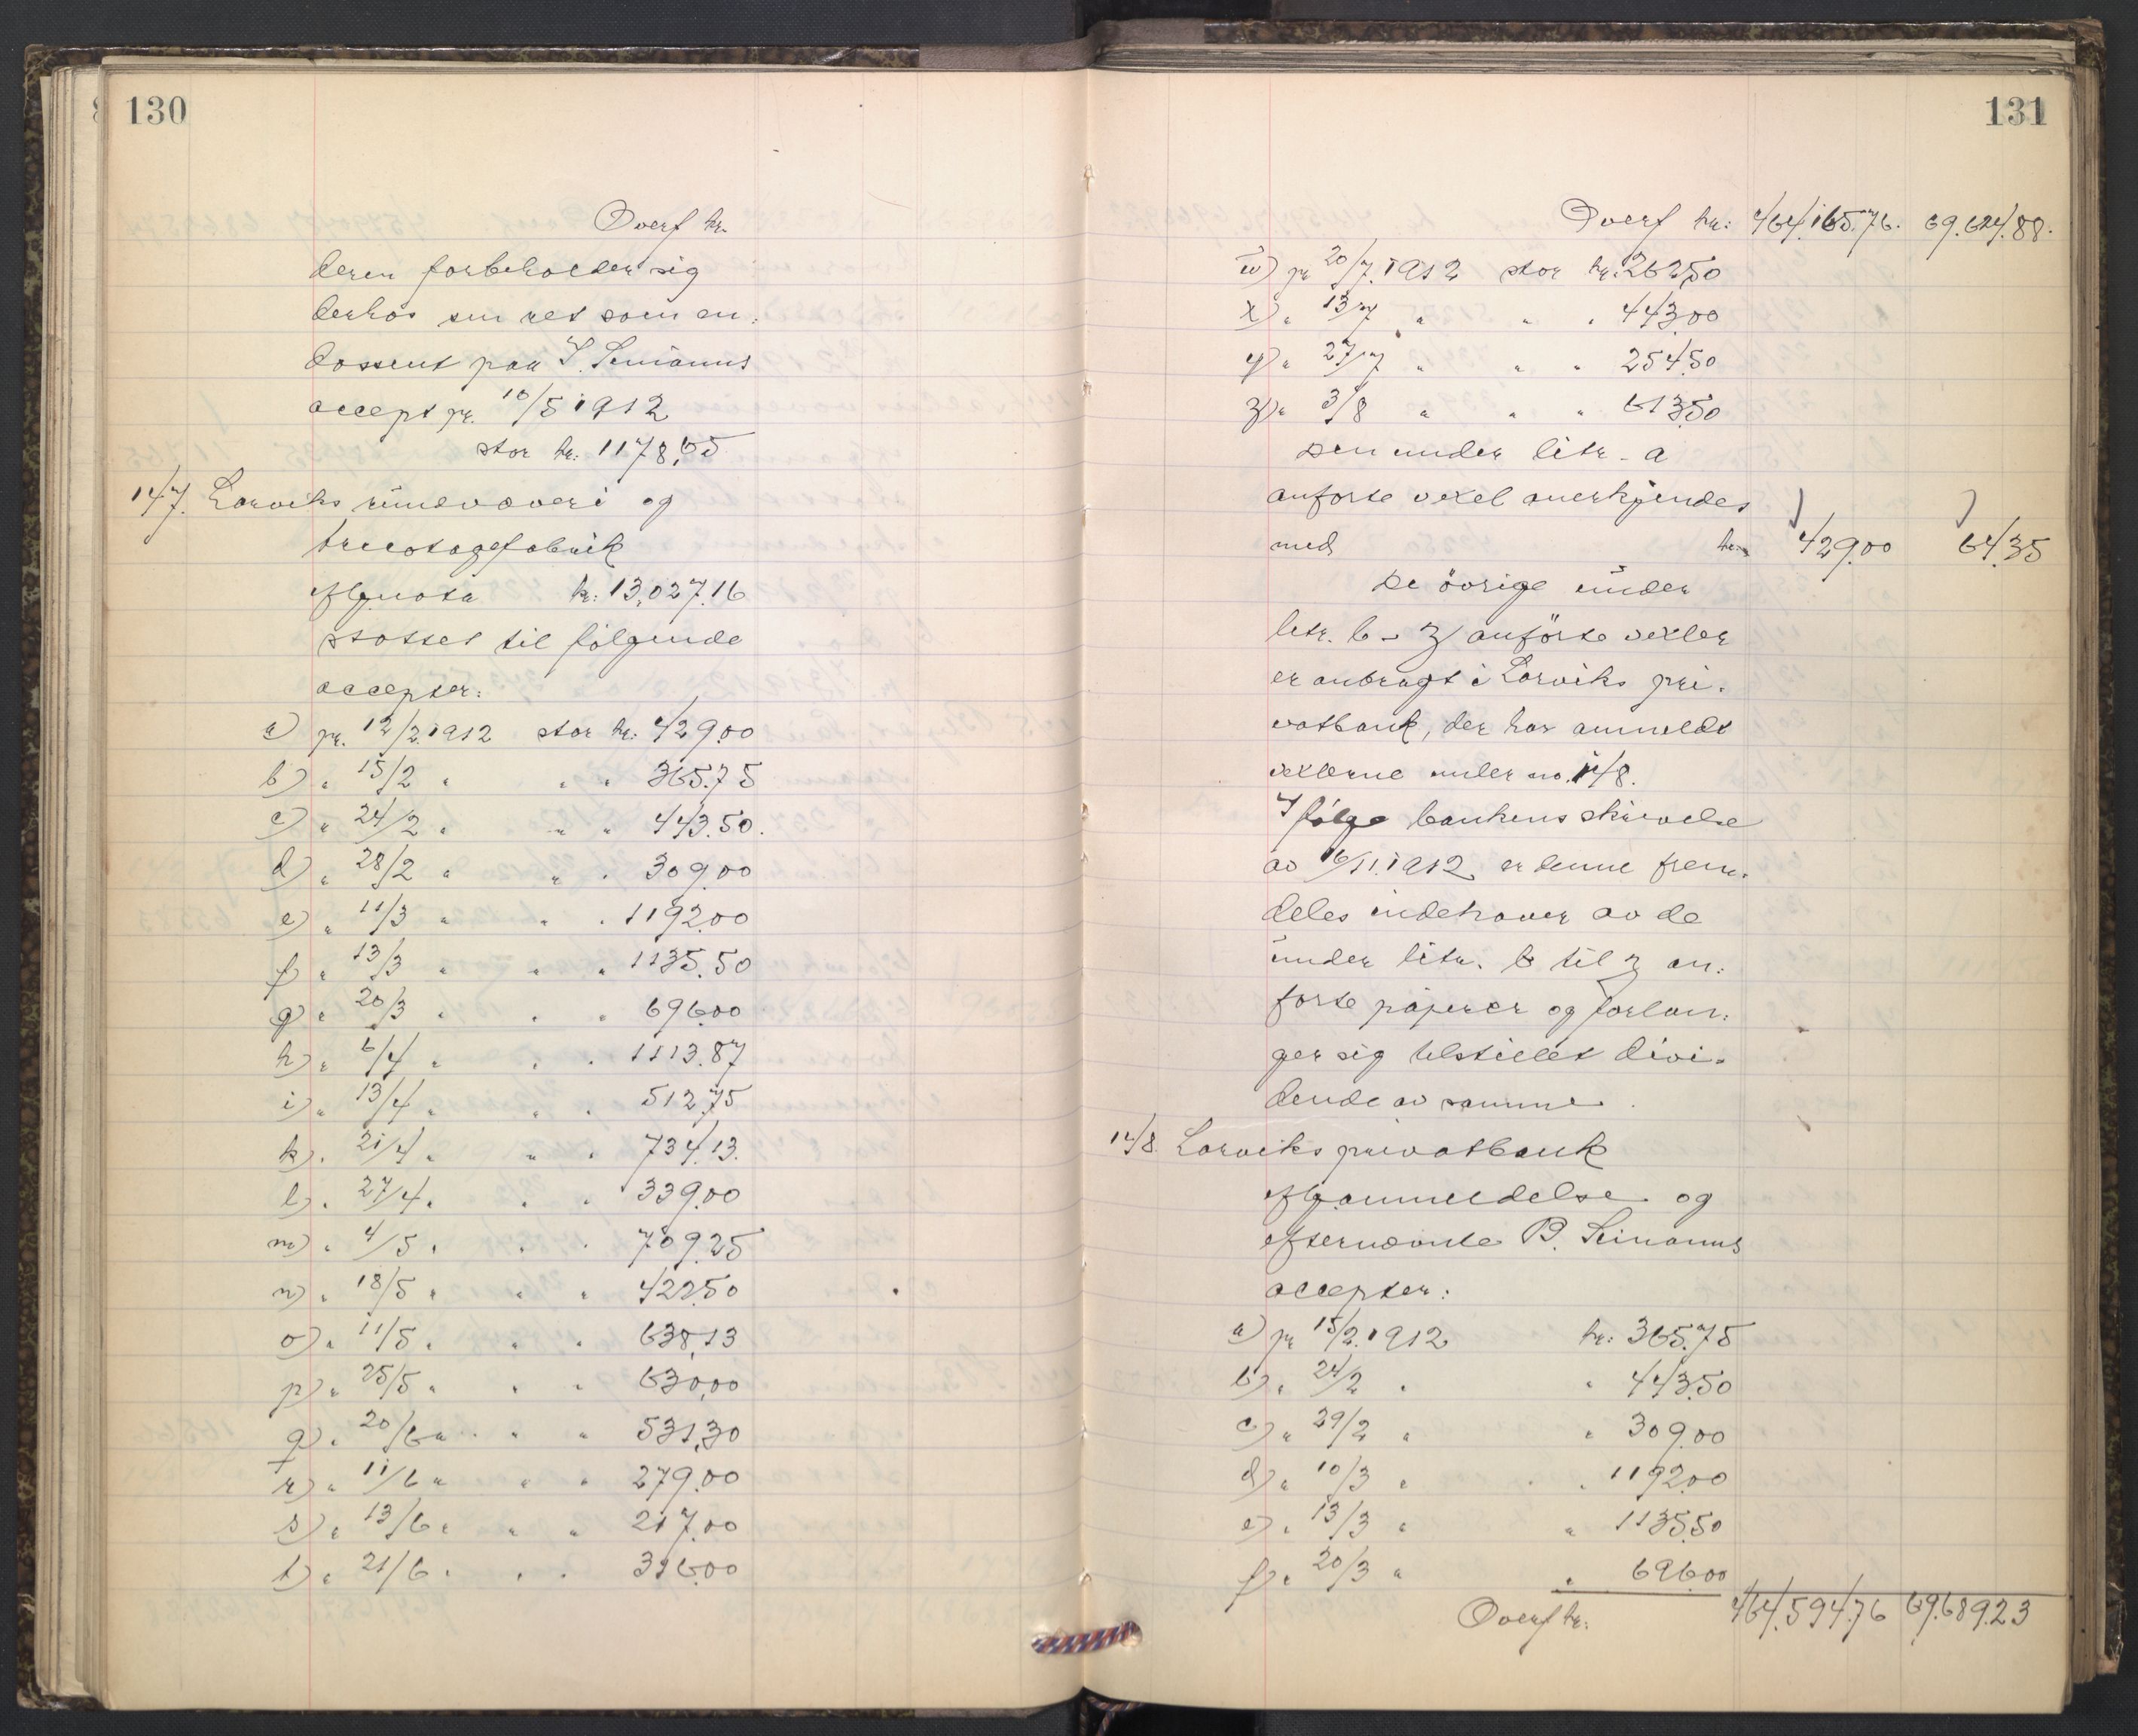 130
Overf kr.
deren forbeholder sig
derhos sin ret som en:
dossent paa S. Seminanns
accept pr. 10/5 1912
stor kr. 1178,65
147. Larviks rundvæveri og
tricotagefabrik
ifølg. nota kr. 13,027.16
støttet til følgende
accepter:
a) pr. 12/2 1912 stor kr. 429.00
b) " 15/2 " " " 365.75
c) " 24/2 " " " 443.50.
d) " 28/2 " " " 309.00
e) " 11/3 " " " 1192.00
f) " 13/3 " " " 1135.50
g) " 20/3 " " " 696.00
h) " 6/4 " " " 1113.87
i) " 13/4 " " " 512.75
k) " 21/4 " " " 734.13.
l) " 27/4 " " " 339.00
m) " 4/5 " " " 709.25
n) " 18/5 " " " 422.50
o) " 11/5 " " " 638,13
p) " 25/5 " " " 630,00
q) " 20/6 " " " 531,30
r) " 11/6 " " " 279.00
s) " 13/6 " " " 217.00
t) " 21/6 " " " 316.00
131
Overf kr: 464,165.76. 69.624.88.
w) pr 20/7. 1912 stor kr. 262.50
x) " 13/7 " " " 443.00
y) " 27/7 " " " 254.50
z) " 3/8 " " " 613.50
Den under litr. a
anførte vexel anerkjendes
med kr. 429.00 64.35
De øvrige under
litr. b - z anførte vexler
er anbragt i Larviks pri-
vatbank, der har anmeldt
vexlerne under no. 148.
Ifølge bankens skrivelse
av 16/11. 1912 er denne frem-
deles indehaver av de
under litr. b til z an:
førte papirer og forlan:
ger sig tilstillet divi-
dende av samme.
148 Larviks privatbank
ifølg. anmeldelse og
efternævnte B. Seinanns
accepter:
a) pr 15/2. 1912 kr: 365.75
b) " 24/2 " " 443.50
c) " 29/2 " " 309.00
d) " 10/3 " " 1192.00
e) " 13/3 " " 1135.50
f) " 20/3 " " 696.00
Overf kr. 464,594.76 69.689.23